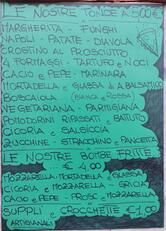 LE NOSTRE TONDE A 5,00€
MARGHERITA FUNGHI
NAPOLI - PATATE - DIAVOLA
CROSTINO AL PROSCIUTTO
4 FORMAGGI - TARTUFO E NOCI
CACIO E PEPE - MARINARA
MORTADELLA E GLASSA DI A. BALSAMICO
BOSCAIOLA (BIANCA O ROSSA)
VEGETARIANA - PARMIGIANA
POMODORINI RIPASSATI - BATUFO
CICORIA E SALSICCIA
ZUCCHINE - STRACCHINO - PANCETTA
LE NOSTRE BOMBE FRITTE
€ 4,00
MOZZARELLA - MORTADELLA E GLASSA
CICORIA E MOZZARELLA - GRICIA
CACIO E PEPE - PROSC. E MOZZARELLA
SUPPLI E CROCCHETTE €1,00
ARTIGIANALI